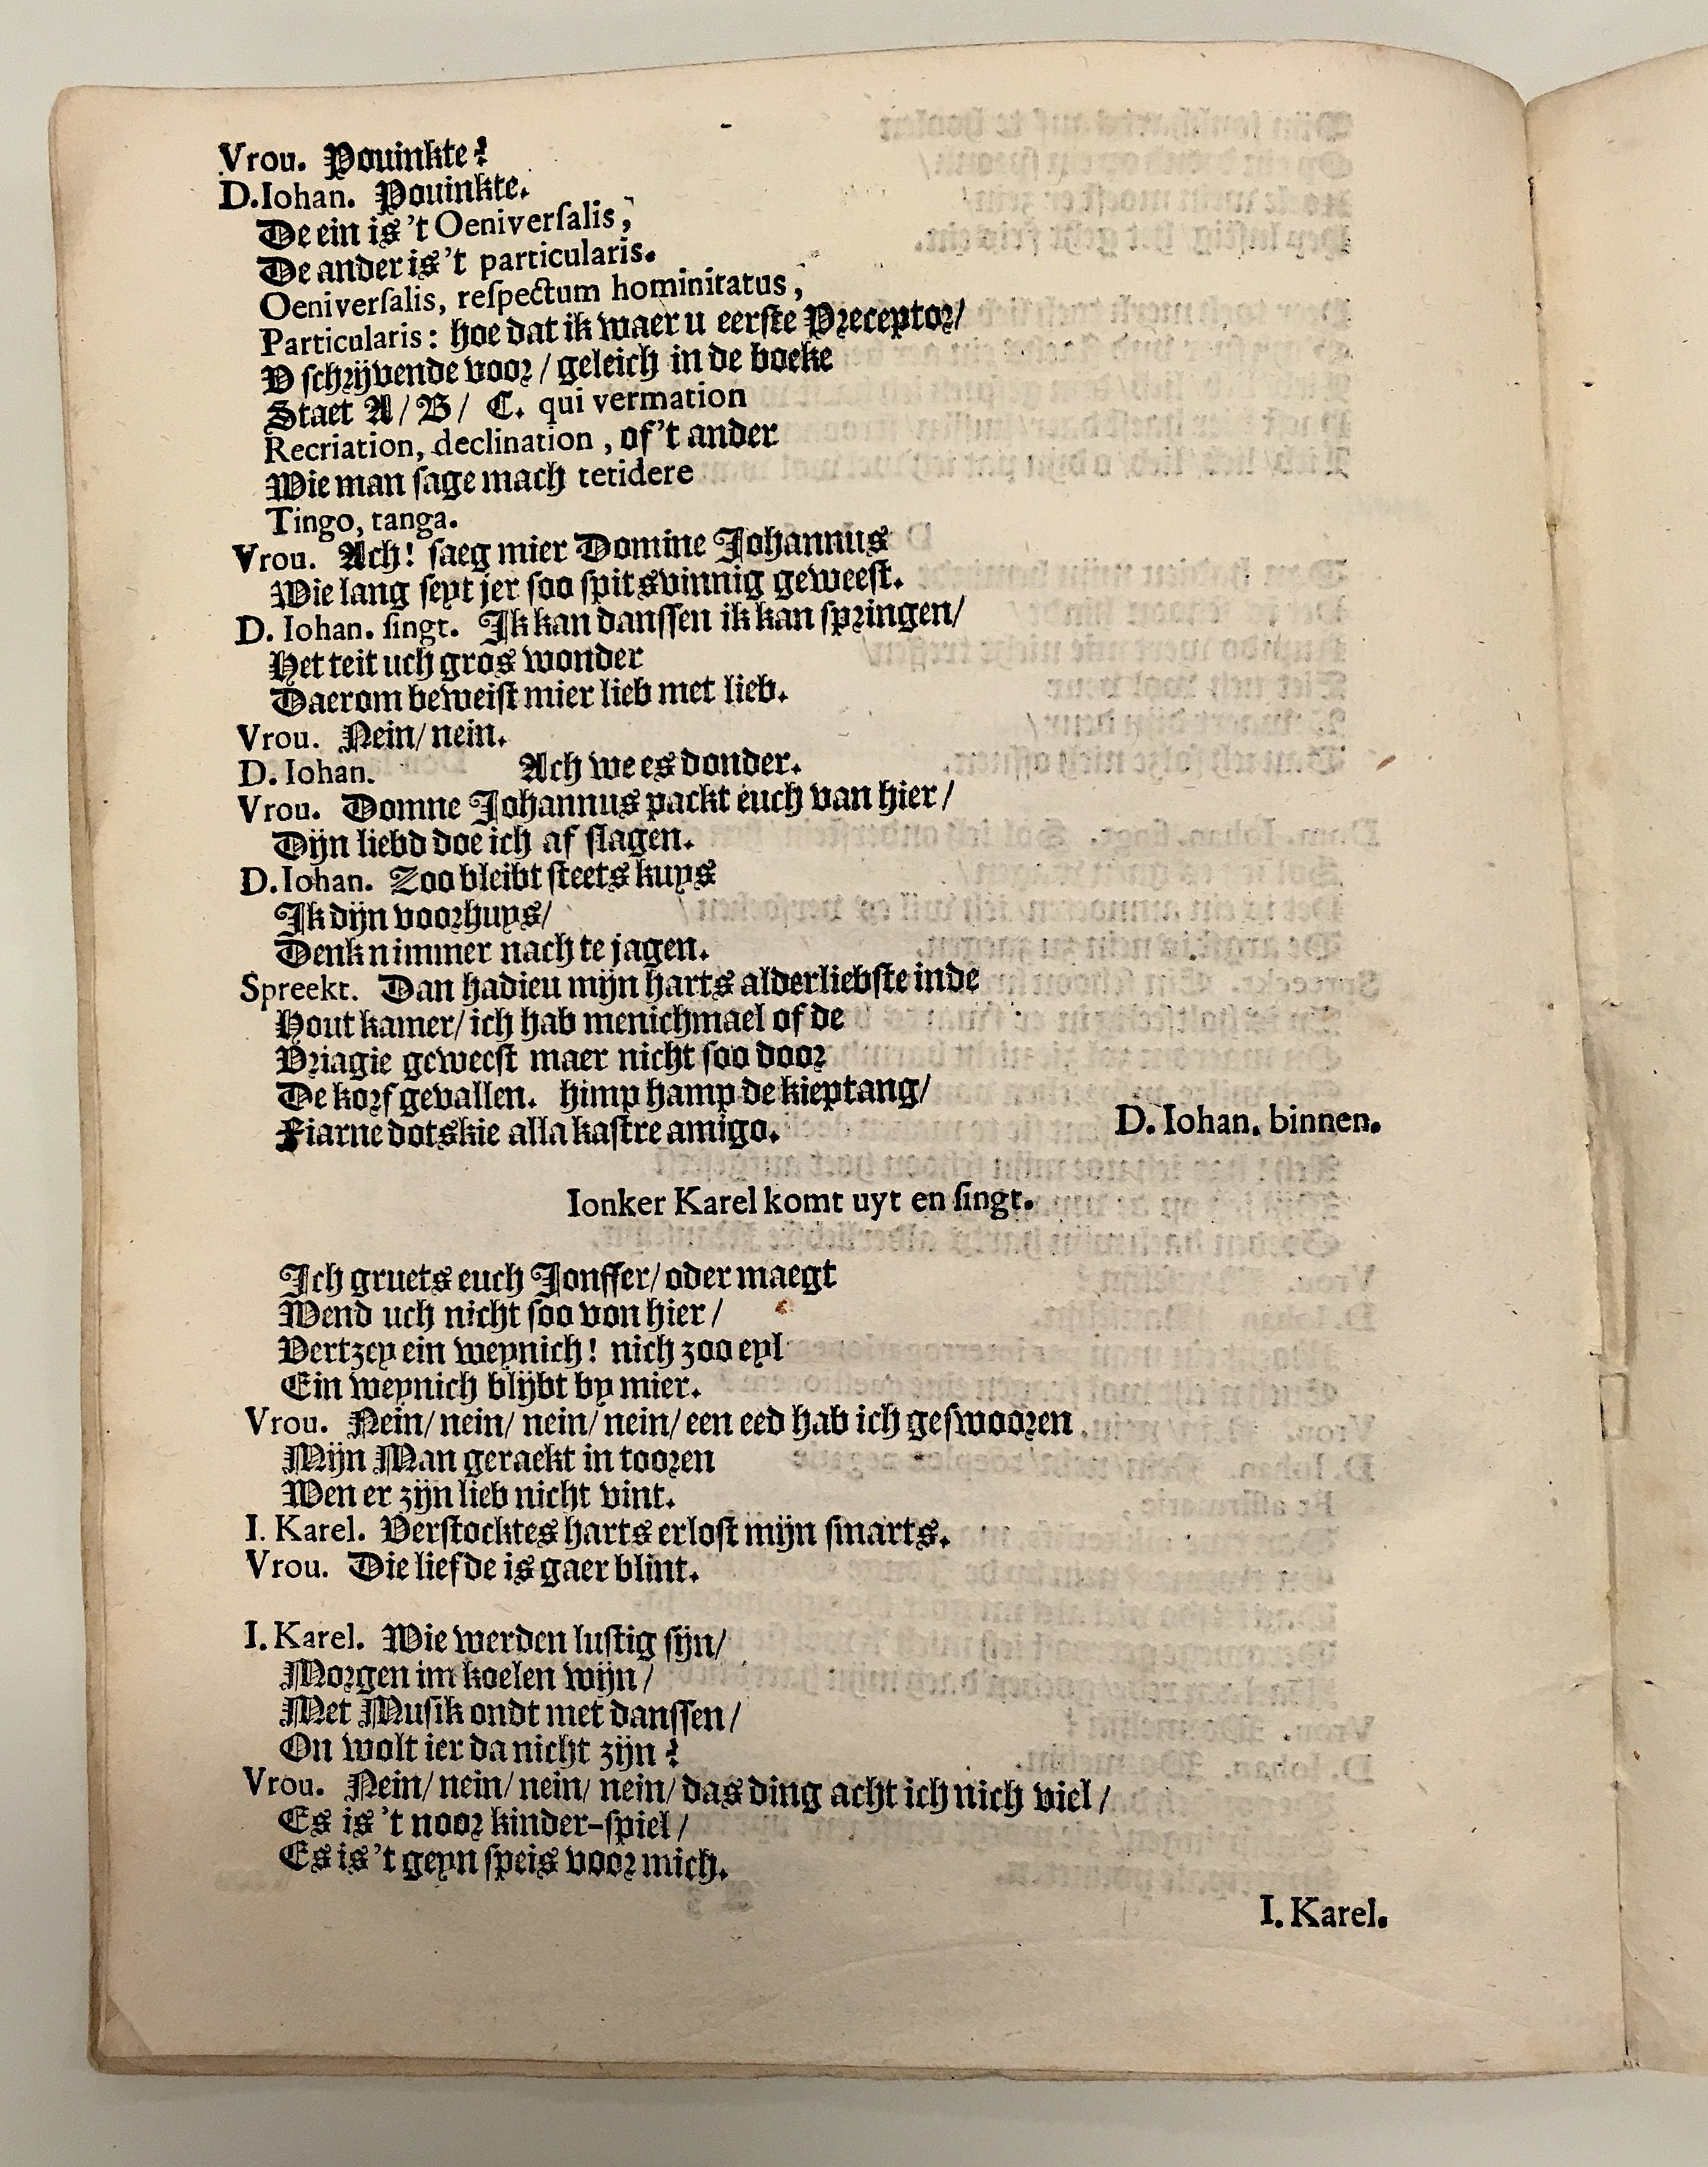 Vrou. Pouinkte?
D.Iohan. Pouinkte.
De ein is 't Oeniverſalis,
De ander is 't particularis.
Oeniverſalis, reſpectum hominitatus,
Particularis: hoe dat ik waer u eerſte Preceptor/
V ſchrijvende voor/ geleich in de boeke
Staet A/ B/ C. qui vermation
Recriation, declination, of 't ander
Wie man ſage mach tetidere
Tingo, tanga.
Vrou. Ach! ſaeg mier Domine Johannus
Wie lang ſeyt jer ſoo ſpitsvinnig geweeſt.
D. Iohan. ſingt. Ik kan danſſen ik kan ſpringen/
Het teit uch gros wonder
Daerom beweiſt mier lieb met lieb.
Vrou. Nein/ nein.
D. Iohan. Ach we es donder.
Vrou. Domne Johannus packt euch van hier/
Dijn liebd doe ich af ſlagen.
D.Iohan. Zoo bleibt ſteets kuys
Ik dijn voorhuys/
Denk nimmer nach te jagen.
Spreekt. Dan hadieu mijn harts alderliebſte inde
Hout kamer/ ich hab menichmael of de
Vriagie geweeſt maer nicht ſoo door
De korf gevallen. himp hamp de kieptang/
Fiarne dotskie alla kaſtre amigo.
D. Iohan. binnen.
Ionker Karel komt uyt en ſingt.
Ich gruets euch Jonffer/ oder maegt
Wend uch nicht ſoo von hier/
Vertzey ein weynich! nich zoo eyl
Ein weynich blijbt by mier.
Vrou. Nein/ nein/ nein/ nein/ een eed hab ich geſwooren
Mijn Man geraekt in tooren
Wen er zijn lieb nicht vint.
I. Karel. Verſtocktes harts erloſt mijn ſmarts.
Vrou. Die liefde is gaer blint.
I. Karel. Wie werden luſtig ſijn/
Morgen im koelen wijn/
Met Muſik ondt met danſſen/
On wolt ier da nicht zijn?
Vrou. Nein/ nein/ nein/ nein/ das ding acht ich nich viel/
Es is 't noor kinder-ſpiel/
Es is 't geyn ſpeis voor mich.
I. Karel.